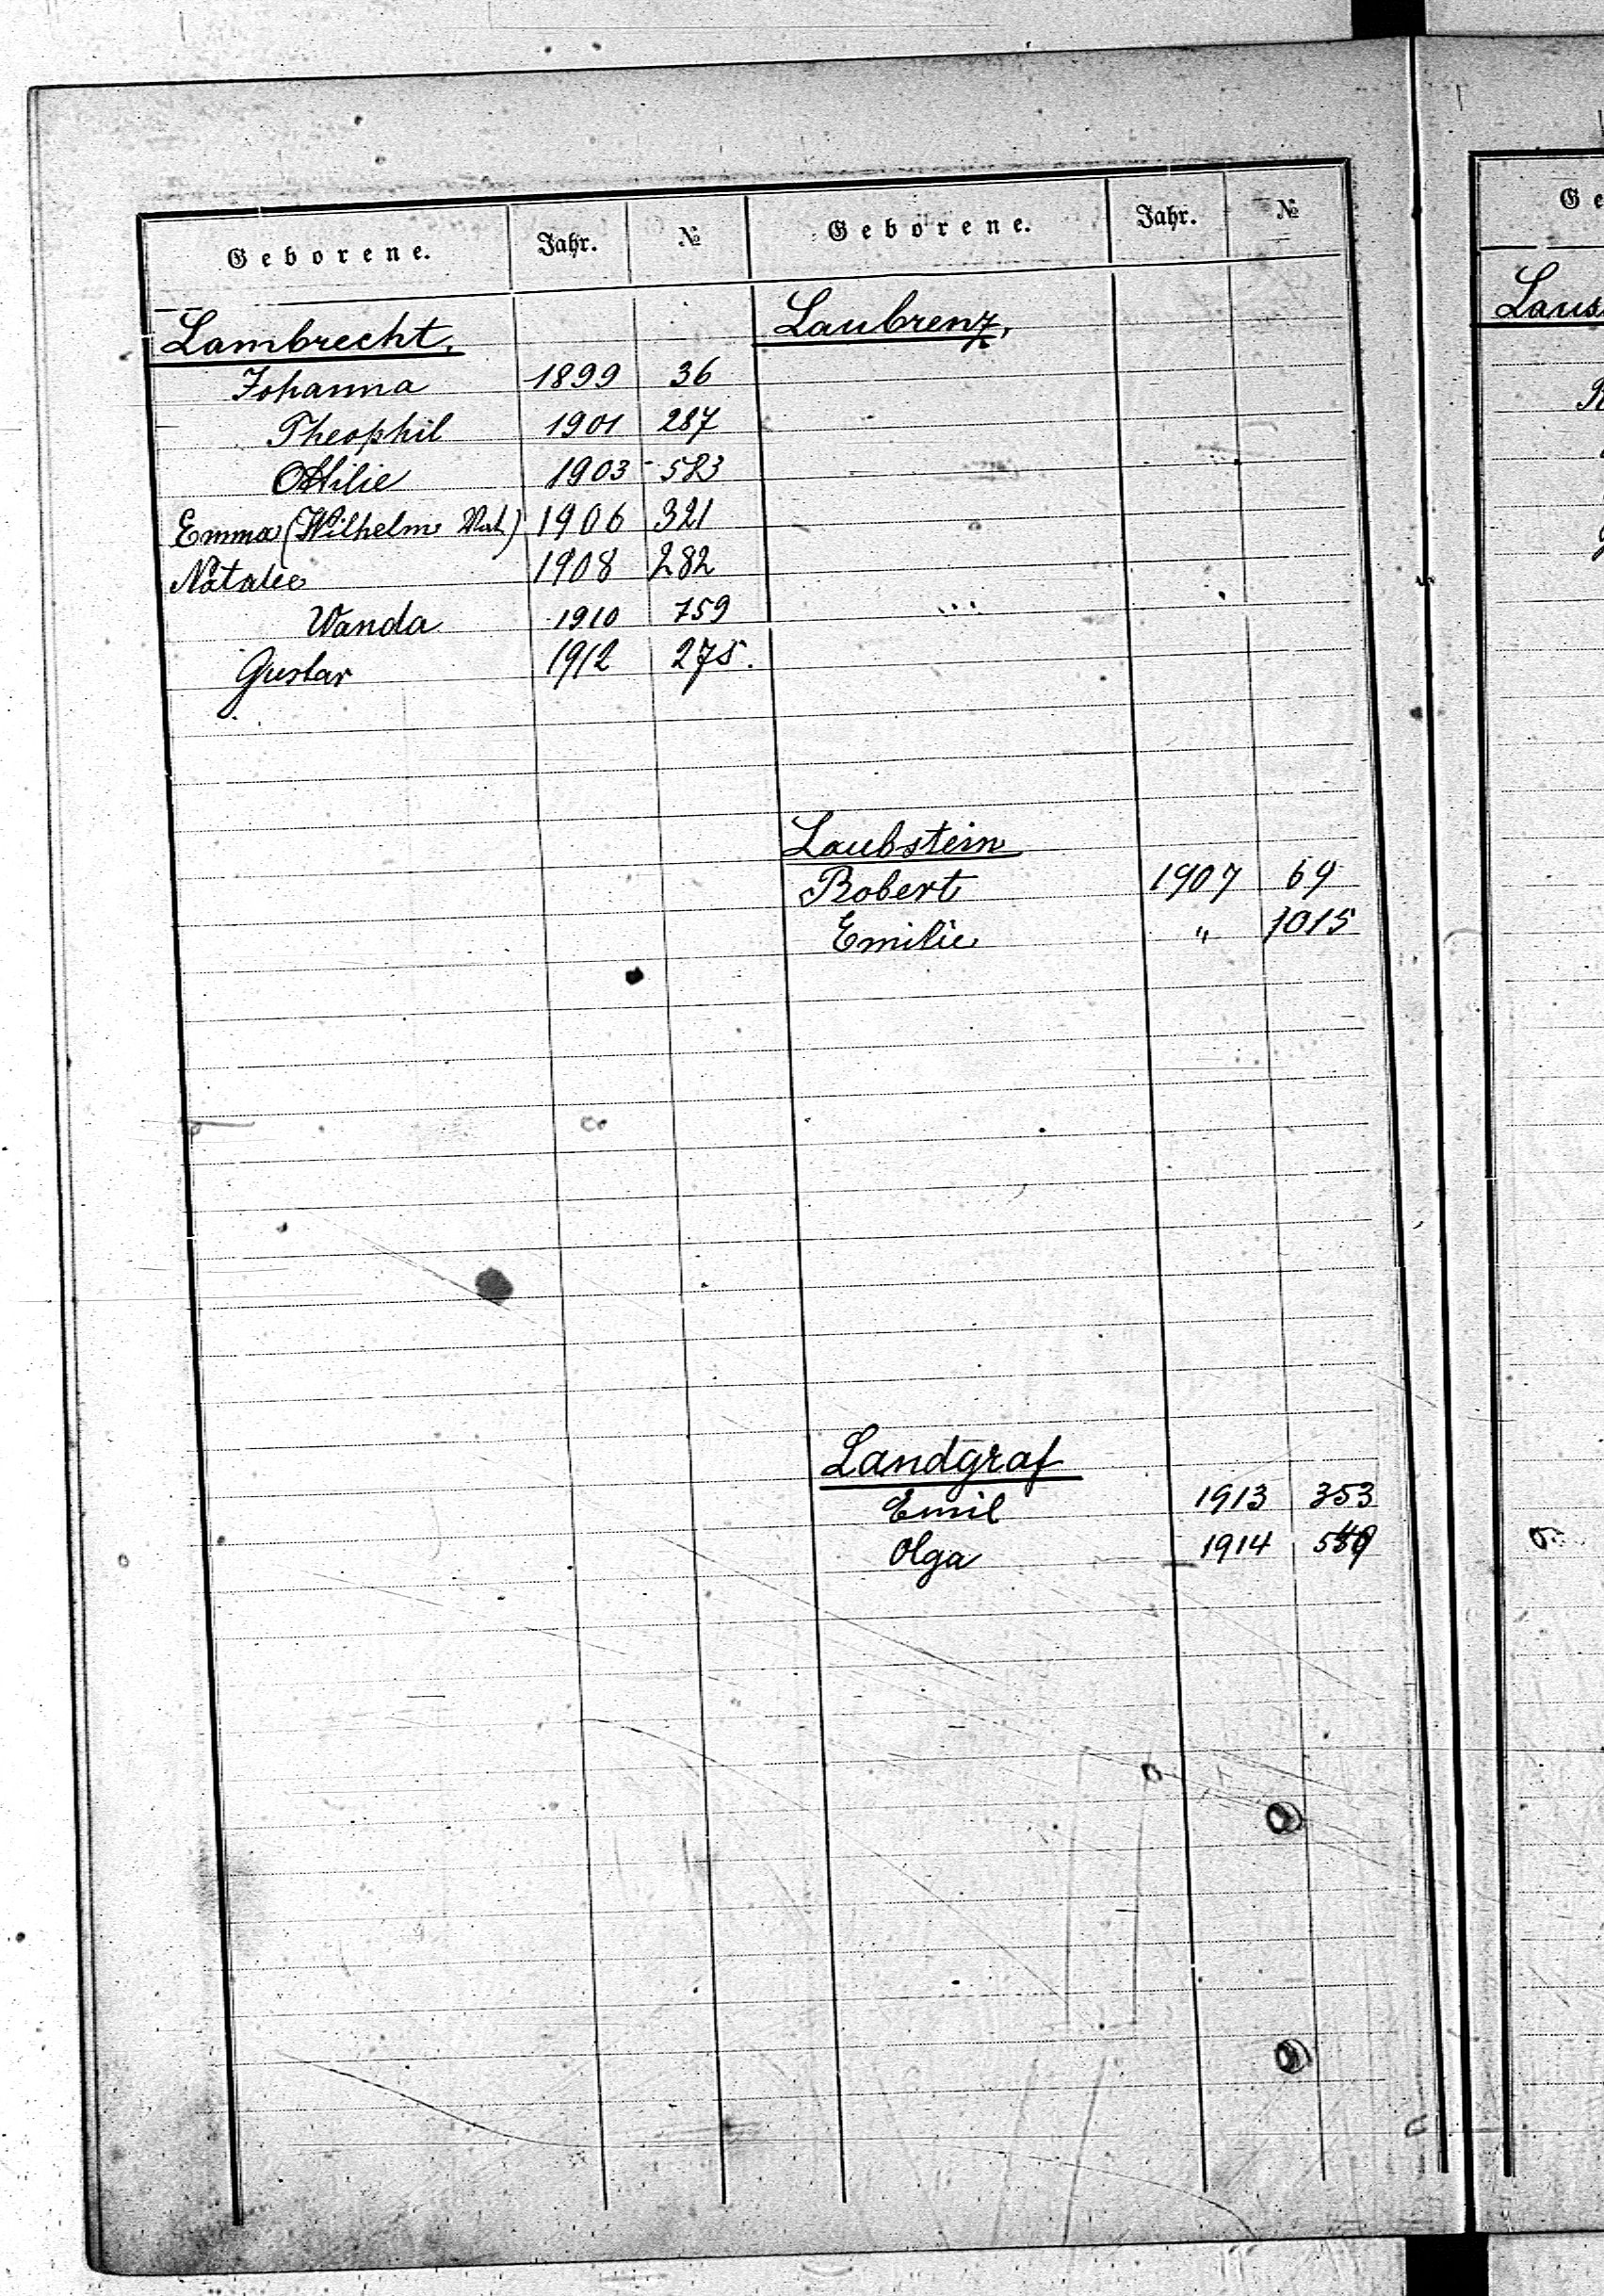 Geborene. Jahr. №
Lambrecht.
Johanna 1899 36
Theophil 1901 287
Ottilie 1903 523
Emma (Wilhelm Vat) 1906 321
Natalie 1908 282
Wanda 1910 759
Gustav 1912 275.
Geborene. Jahr. №
Laubrenz,
Laubstein
Robert 1907 69
Emilie " 1015
Landgraf
Emil 1913 353
Olga 1914
Ge
Laus